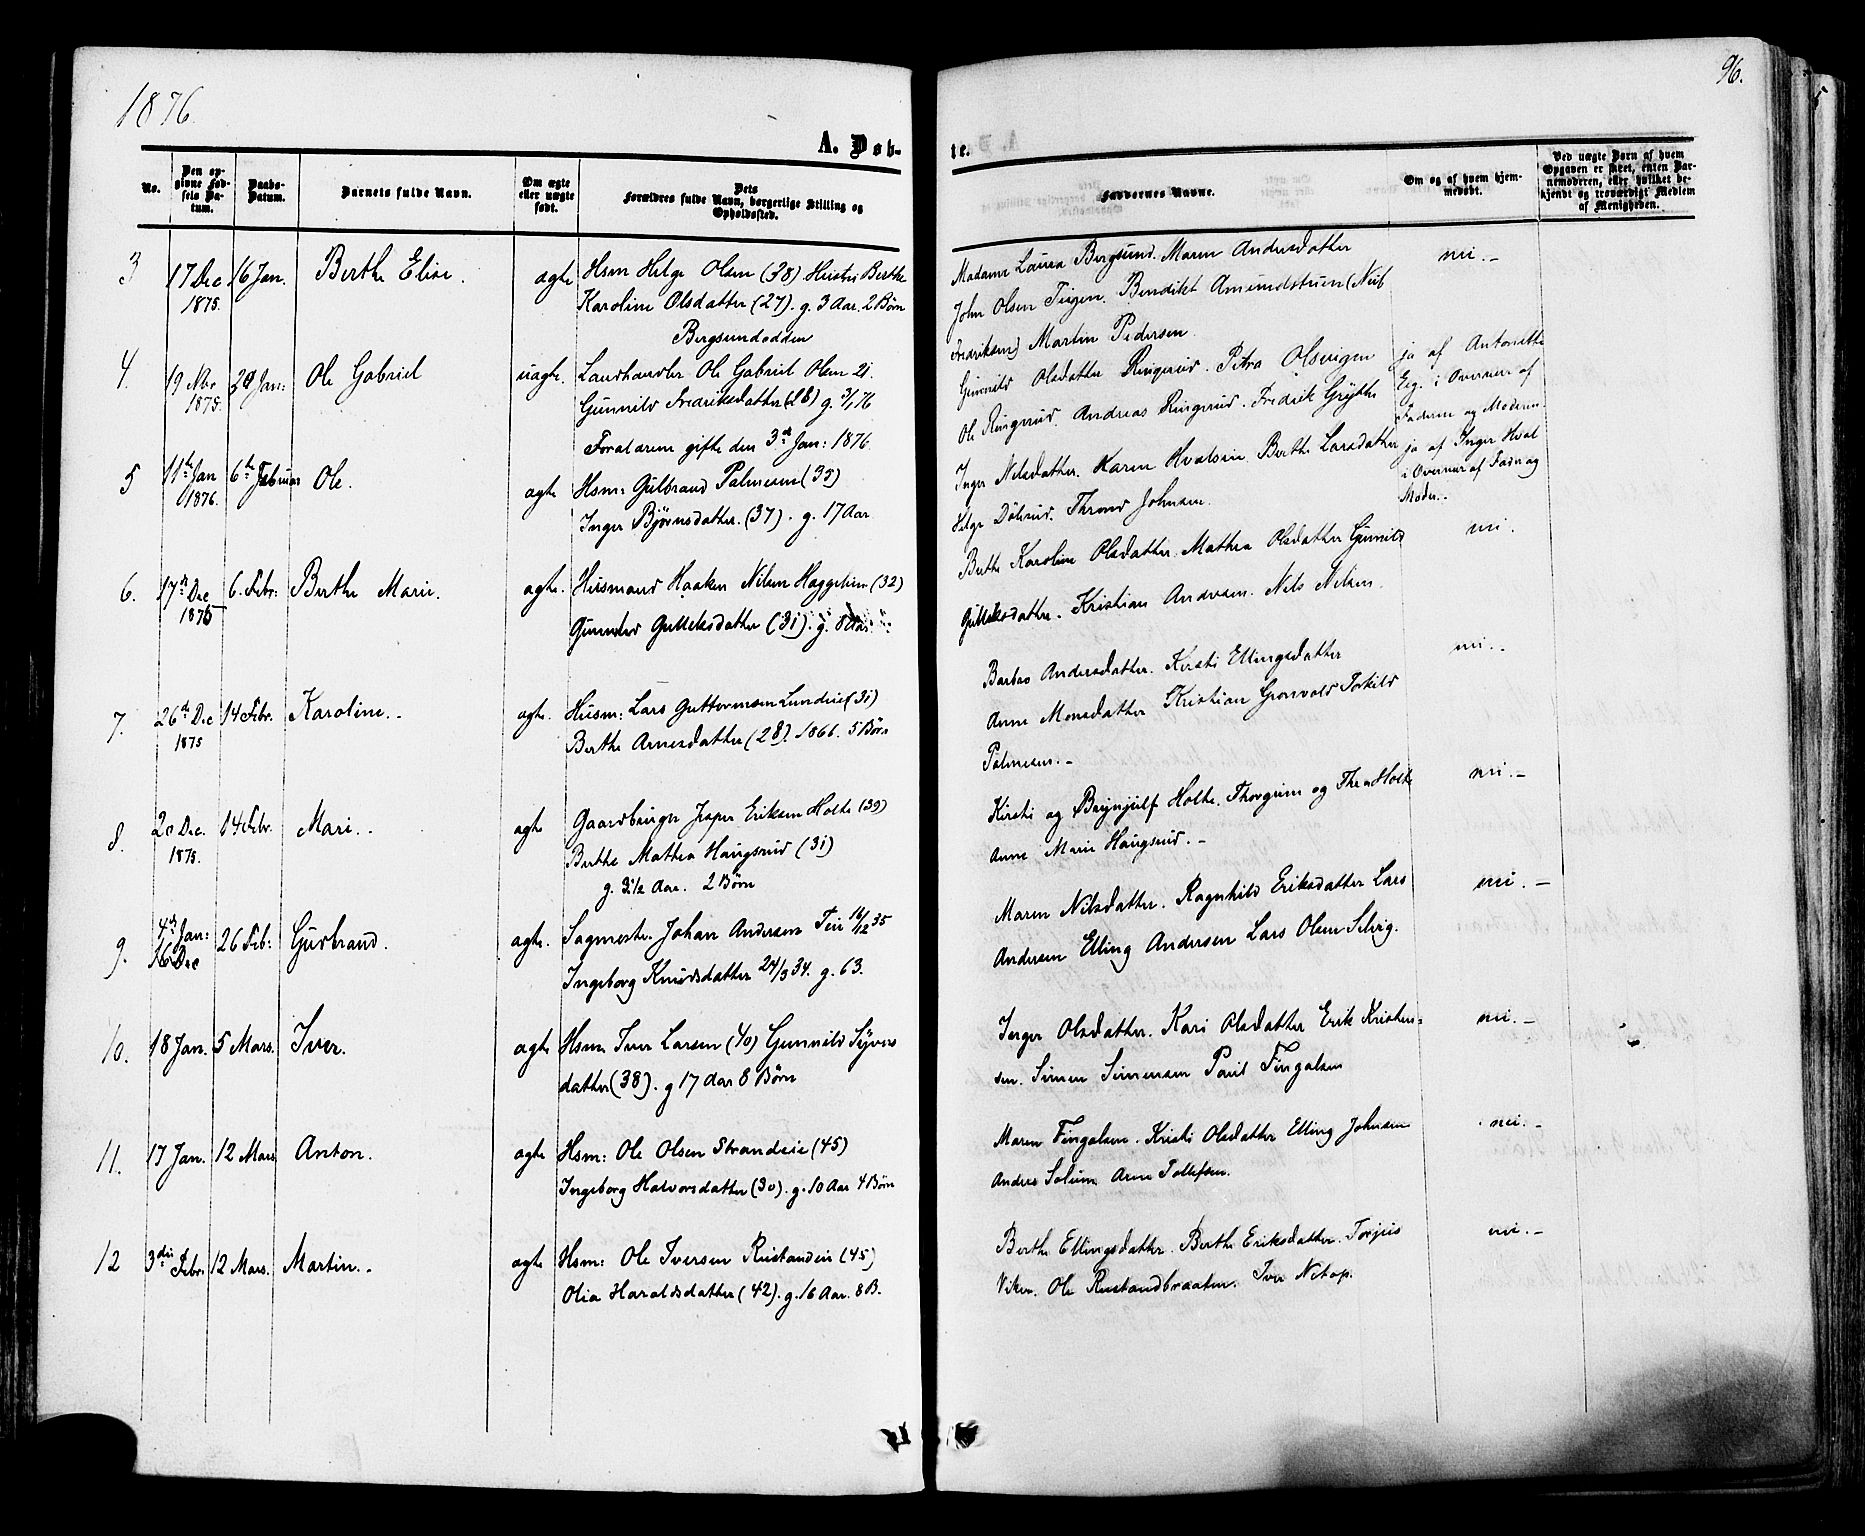 1876
96.
A. Døb-
te.
No.
Den op-
givne Fød-
sels Da-
tum.
Daabs-
Datum.
Barnets fulde Navn.
Om ægte
eller uægte
født.
Dets
Forældres fulde Navn, borgerlige Stilling og
Opholdssted.
Faddernes Navne.
Om og af hvem hjem-
medøbt.
Ved uægte Børn af hvem
Opgaven er skeet, enten Bar-
nemoderen, eller hvilket be-
kjendt og troværdigt Medlem
af Menigheden.
3 17 Dec 16 Jan. Berthe Elise. ægte Hsm Helge Olsen (38) Hustru Berthe
1875. Karoline Olsdatter (27). g. 3 Aar. 2 Børn
Bergsundodden
Madame Laura Bergsund. Maren Andersdatter
John Olsen Teigen. Bendikt Amundstuen
Fredriksen) Martin Pedersen
nei.-
4. 19 Nbr 29 Jan: Ole Gabriel uægte. Landhandler Ole Gabriel Olsen 21.
1875. Gunnild Fredriksdatter (28) g. 3/1 76
Forældrene gifte den 3die Jan: 1876.
Gunnild Olsdatter Ringerud. Petra Olsteigen
Ole Ringerud. Andreas Ringerud. Fredrik Grytte
ja af Antonette
Eeg. i Overvær af
Faderen og Moderen.
5 11te Jan 6te Februar Ole. ægte Hsm: Gulbrand Palmesen (33)
1876. Inger Bjørnsdatter. (37). g. 17 Aar
Inger Nilsdatter. Karen Hvalseie Berthe Larsdatter
Helge Dølerud. Thrond Johnsen.
ja af Inger Hval
i Overvær af Fader og
Moder..
6. 17de Dec 6. Febr: Berthe Marie. ægte. Husmand Haaken Nilsen Haggelien (32)
1875 Gunnild Gulleksdatter (31). g. 8 Aar.
Berthe Karoline Olsdatter. Mathea Olsdatter Gunnild
Gulleksdatter. Kristian Andersen. Nils Nilsen.
nei.
7. 26de Dec 14 Febr. Karoline.. ægte. Husm: Lars Guttormsen Lundeie (31)
1875 Berthe Arnesdatter (28). 1866. 5 Børn
Barbro Andersdatter. Kirsti Ellingsdatter
Anne Monsdatter Kristian Grønvold Torkild
Palmesen.-
nei.-
8. 20 Dec. 14 Febr. Mari.. ægte Gaardbruger Jesper Eriksen Holte (39)
1875. Berthe Mathea Haugerud (31)
g. 3 1/2 Aar. 2 Børn
Kirsti og Brynjulf Holte. Thorgrim og Thea Holte
Anne Marie Haugerud.-
nei.-
9. 4de Jan: 26 Feb: Gurbrand. ægte. Sagmester Johan Andersen Teie 16/12 35
16 Dec Ingeborg Knudsdatter 24/3 34. g. 63.
Maren Nilsdatter. Ragnhild Eriksdatter Lars
Andersen Elling Andersen Lars Olsen Selvig.
nei.-
10. 18 Jan. 5 Mars. Iver. ægte Hsm Iver Larsen (40) Gunnild Syvers
datter (38). g 17 Aar 8 Børn
Inger Olsdatter. Kari Olsdatter Erik Kristen=
sen. Simen Simensen Paul Fingalsen
nei.-
11. 17 Jan. 12 Mars Anton. ægte Hsm: Ole Olsen Strandeie (45)
Ingeborg Halvorsdatter (30). g. 10 Aar 4 Børn
Maren Fingalsen. Kirsti Olsdatter Elling Johnsen
Andrea Solum. Arne Tollefsen.
nei.-
12 3die Febr. 12 Mars. Martin.- ægte Hsm: Ole Iversen Rustandeie (45)
Olia Haraldsdatter (42). g. 16 Aar. 8 B.
Berthe Ellingsdatter. Berthe Eriksdatter. Torjus
Viker. Ole Rustandbraaten. Iver Netop.
nei.-